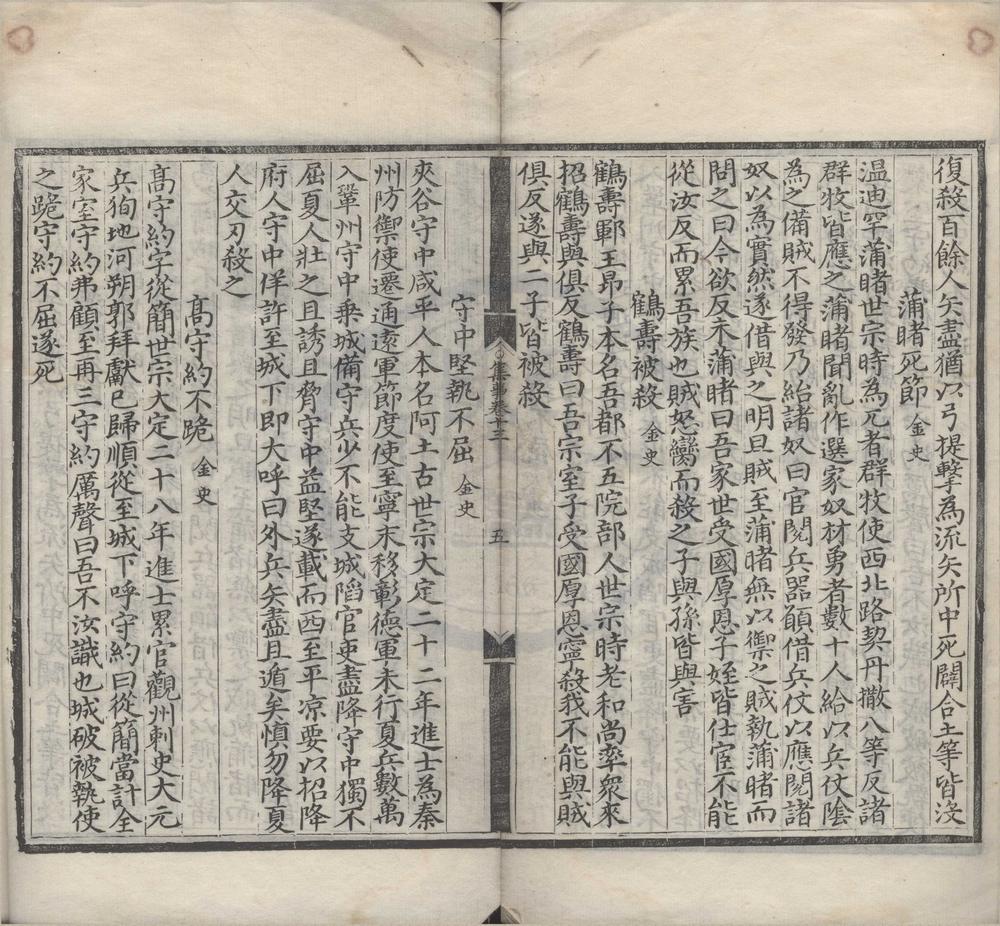 復殺百餘人矢盡猶以弓提擊為流矢所中死闢合土等皆沒
蒲睹死節 金史
温迪罕蒲睹世宗時為兀者群牧使西北路契丹撒八等反諸
群牧皆應之蒲睹聞亂作選家奴材勇者數十人給以兵仗陰
為之備賊不得發乃紿諸奴曰官閱兵器願借兵仗以應閱諸
奴以為實然遂借與之明旦賊至蒲睹無以禦之賊執蒲睹而
問之曰今欲反未蒲睹曰吾家世受國厚恩子姪皆仕宦不能
從汝反而累吾族也賊怒臠而殺之子與孫皆與害
鶴壽被殺 金史
鶴壽鄆王昂子本名吾都不五院部人世宗時老和尚率衆來
招鶴壽與俱反鶴壽曰吾宗室子受國厚恩寧殺我不能與賊
俱反遂與二子皆被殺
集事卷十三 五
守中堅執不屈 金史
夾谷守中咸平人本名阿土古世宗大定二十二年進士為秦
州防禦使遷通遠軍節度使至寧末移彰德軍未行夏兵數萬
入鞏州守中乗城備守兵少不能支城陷官吏盡降守中獨不
屈夏人壯之且誘且脅守中益堅遂載而西至平凉要以招降
府人守中佯許至城下即大呼曰外兵矢盡且遁矣慎勿降夏
人交刃殺之
髙守約不跪 金史
髙守約字從簡世宗大定二十八年進士累官觀州刺史大元
兵狥地河朔郭拜獻已歸順從至城下呼守約曰從簡當計全
家室守約弗顧至再三守約厲聲曰吾不汝識也城破被執使
之跪守約不屈遂死